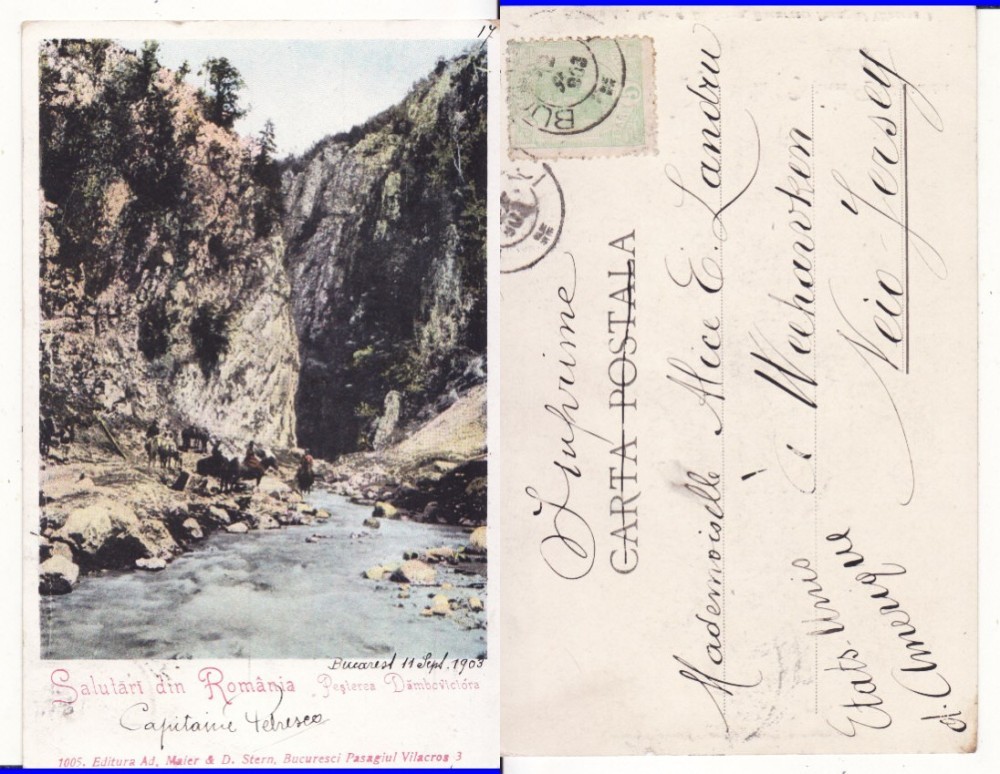 17
Bucarest 11 Sept. 1903
Salutări din România Peșterea Dâmbovicióra
Capitaine
1005. Editura Ad. Maier & D. Stern, Bucuresci Pasagiul Vilacros 3
BU
5
903
Imprime
CARTA POSTALA
Mademoiselle Alice E. Landru
à Weehawken
New-Jersey
États-Unis
d'Amerique